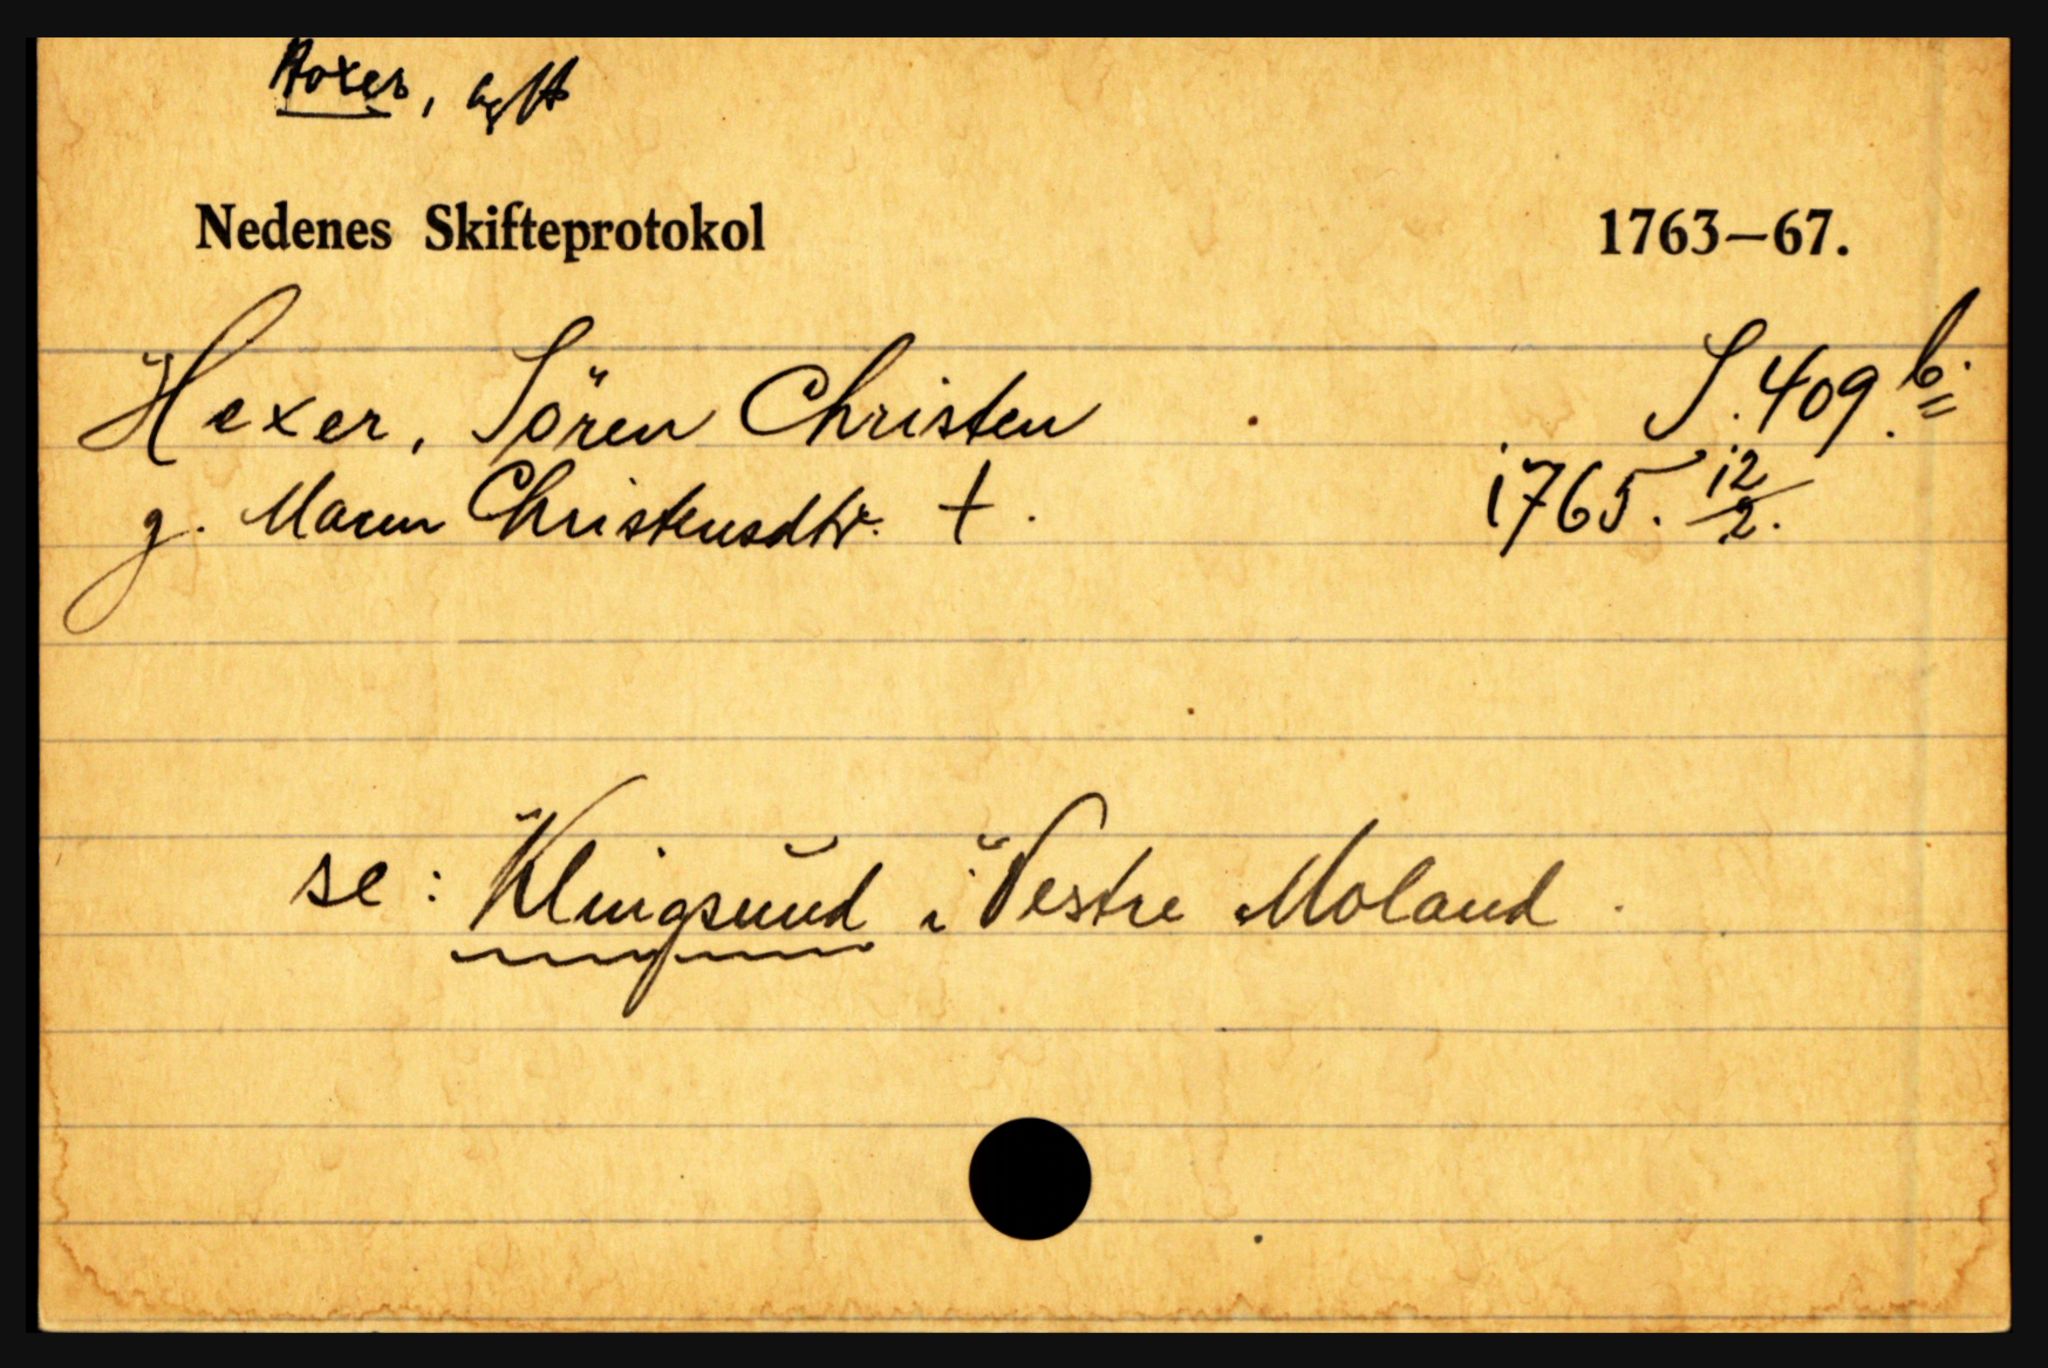 Hoxer,
Nedenes Skifteprotokol 1763—67.
Hexer, Sören Christen S. 409 b.
g. Maren Christensdtr. † . 1765. 12/2.
se: Klingsund i Vestre Moland .